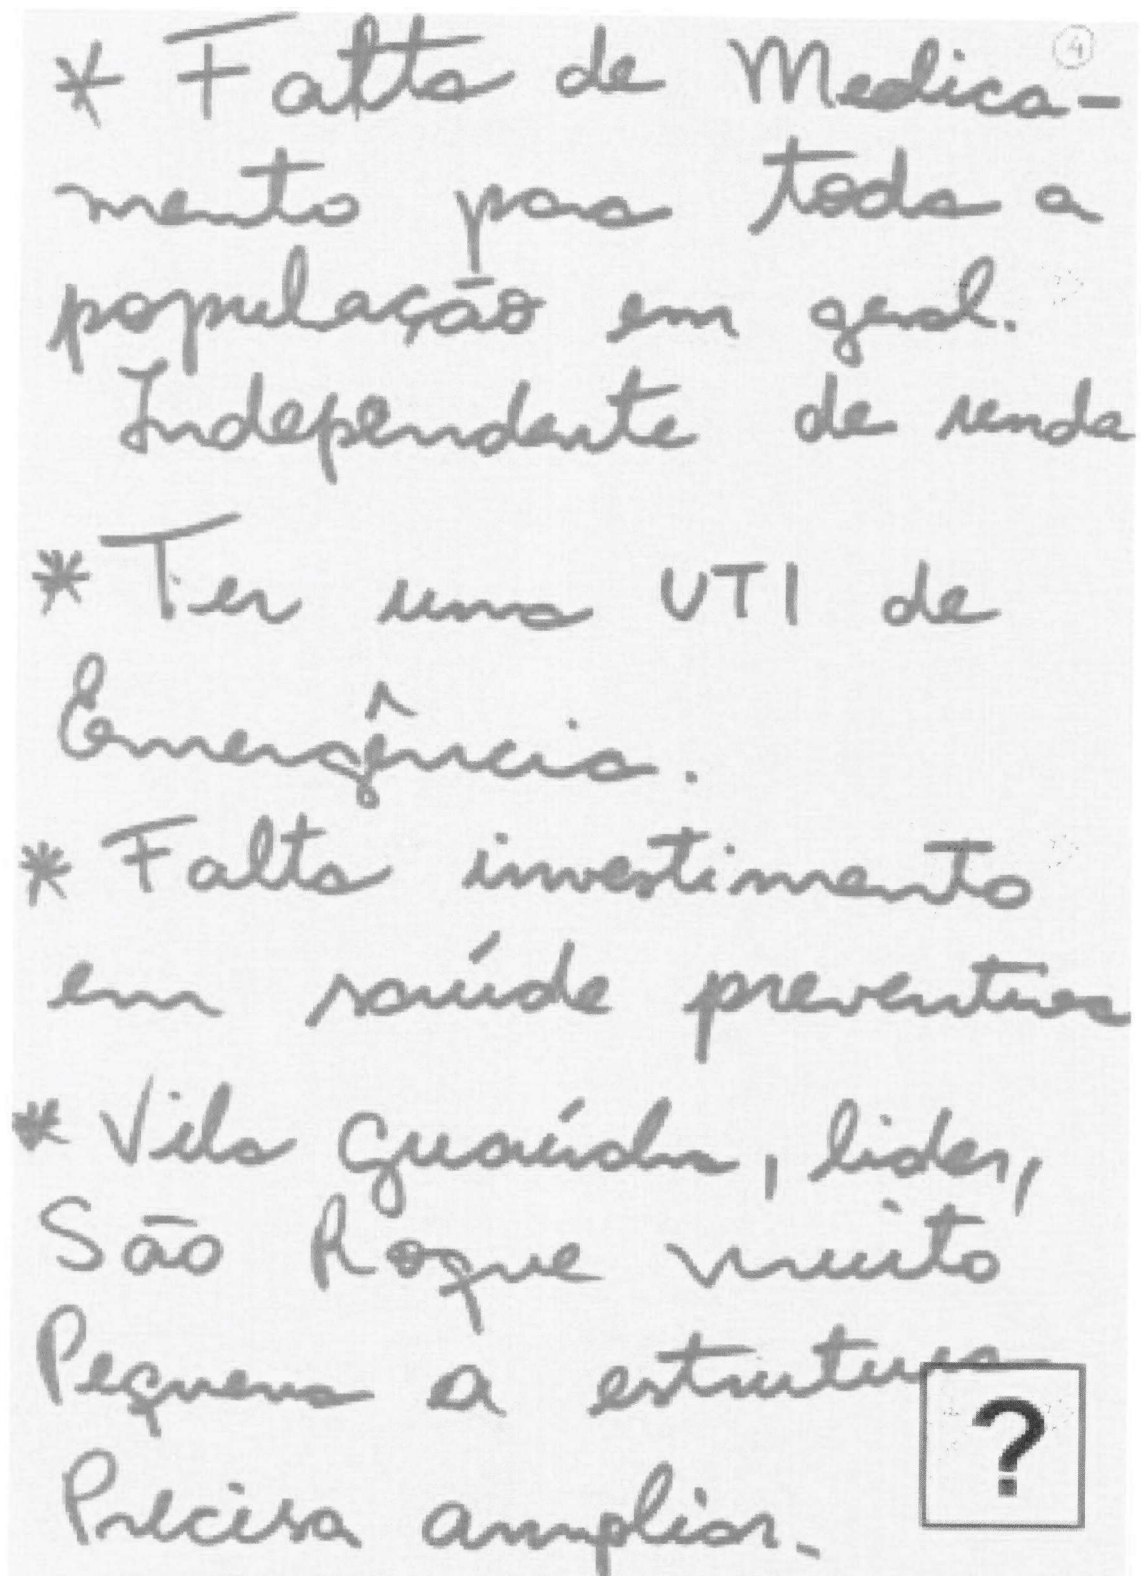 4
* Falta de Medica-
mento para toda a
população em geral.
Independente de renda
* Ter uma UTI de
Emergência.
* Falta investimento
em saúde preventiva
* Vila Guaíra, lider,
São Roque muito
Pequena a estrutura
Precisa ampliar.
?